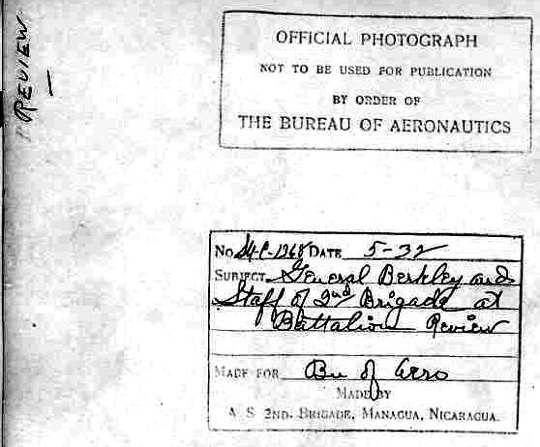 REVIEW
OFFICIAL PHOTOGRAPH
NOT TO BE USED FOR PUBLICATION
BY ORDER OF
THE BUREAU OF AERONAUTICS
NO. DATE 5-32
SUBJECT General Berkley and
Staff of 2nd Brigade at
Battalion Review
MADE FOR Bu of Aero
MADE BY
A. S. 2ND. BRIGADE, MANAGUA, NICARAGUA.